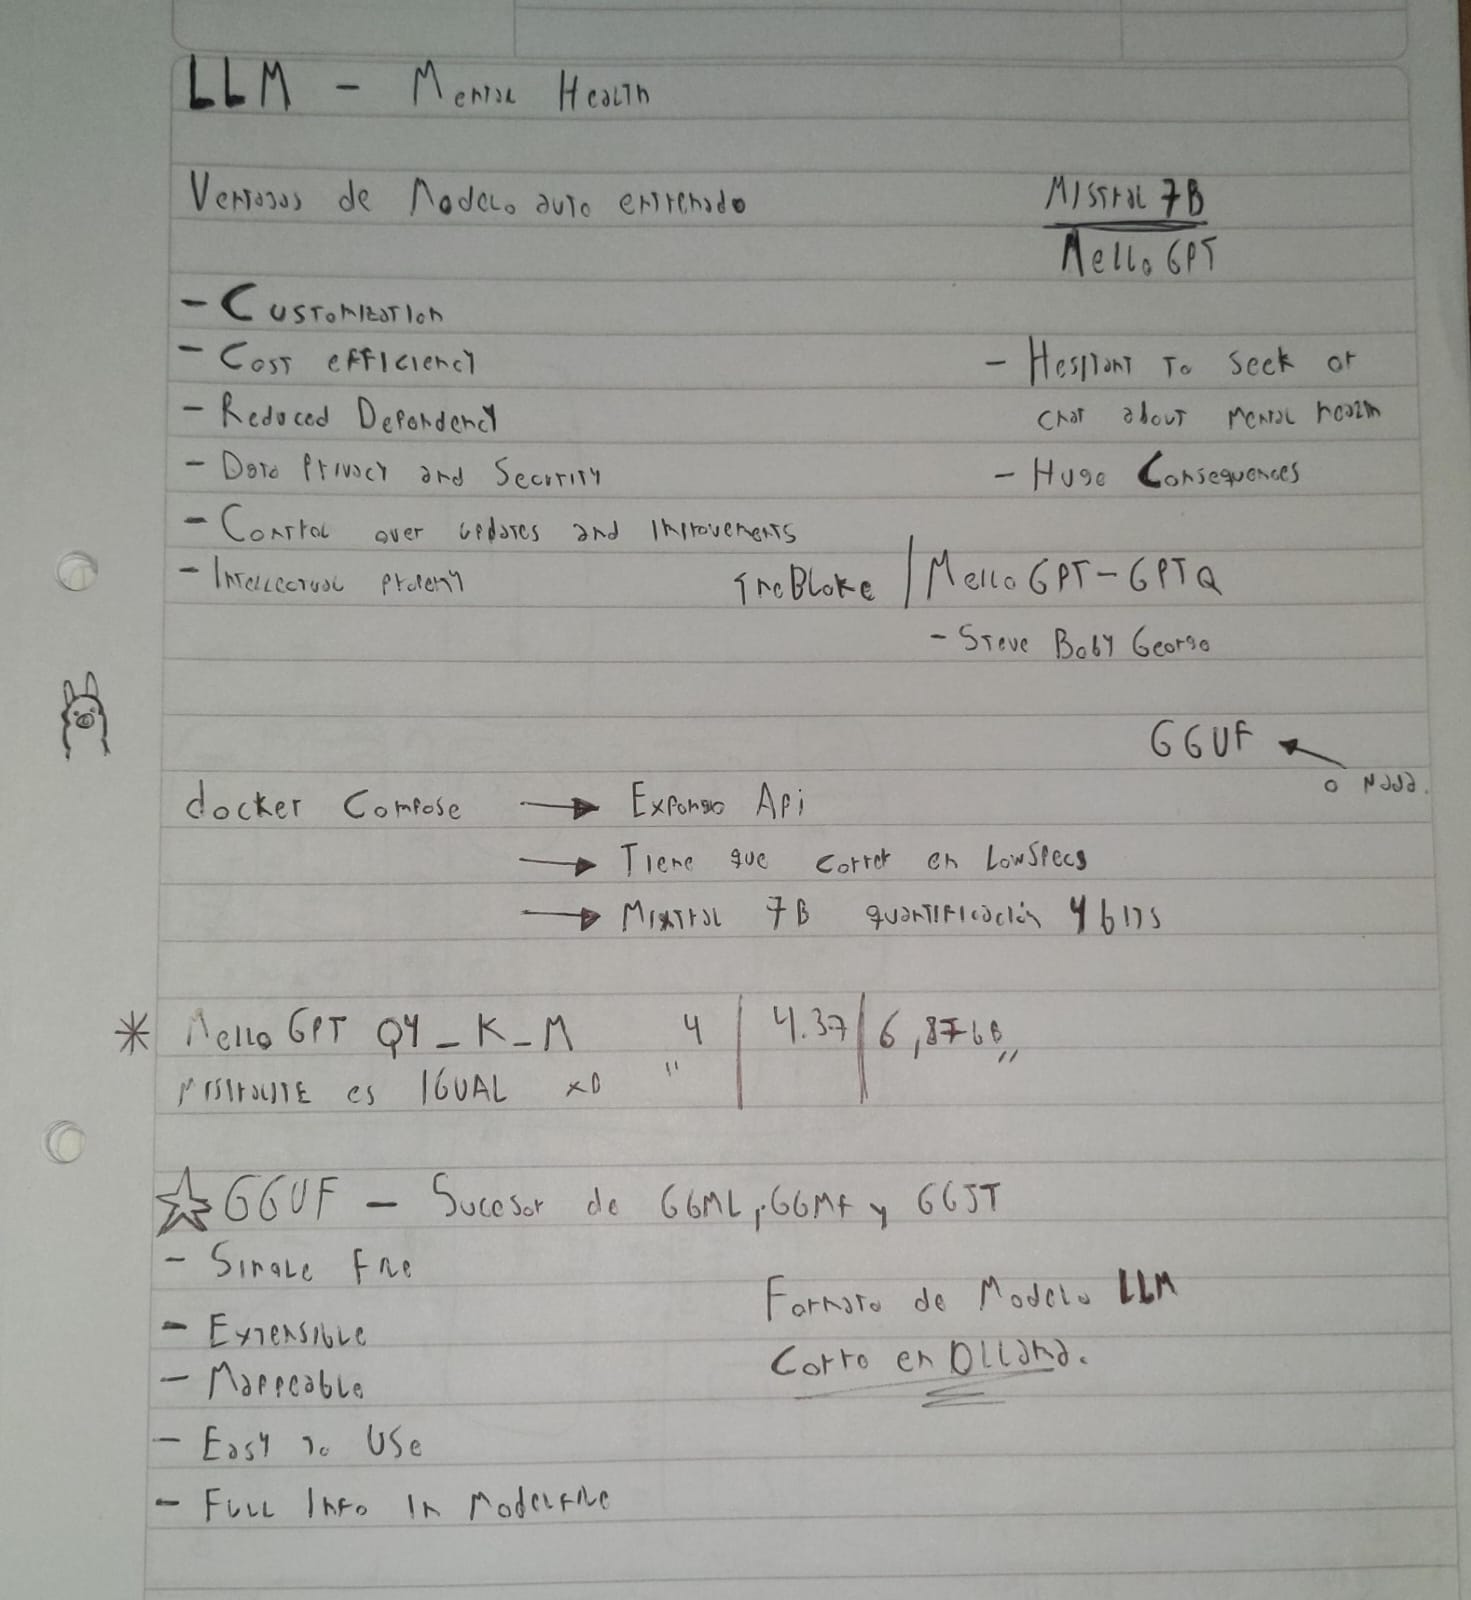 LLM - Mental Health
Ventajas de Modelo auto entrenado
Mistral 7B
Mello GPT
- Customization
- Cost efficiency
- Reduced Dependency
- Data Privacy and Security
- Control over updates and improvements
- Intellectual property
- Hesitant to seek or
chat about mental health
- Huge Consequences
TheBloke / Mello GPT - GPTQ
- Steve Boby George
GGUF
o nada.
docker compose → Expongo Api
→ Tiene que correr en LowSpecs
→ Mixtral 7B quantificación 4 bits
* Mello GPT Q4_K_M 4 | 4.37 | 6,87GB
MistraLITE es IGUAL xD " "
☆ GGUF - Sucesor de GGML, GGMF y GGJT
- Single File
- Extensible
- Mappeable
- Easy to Use
- Full Info in Modelfile
Formato de Modelo LLM
Corro en Ollama.